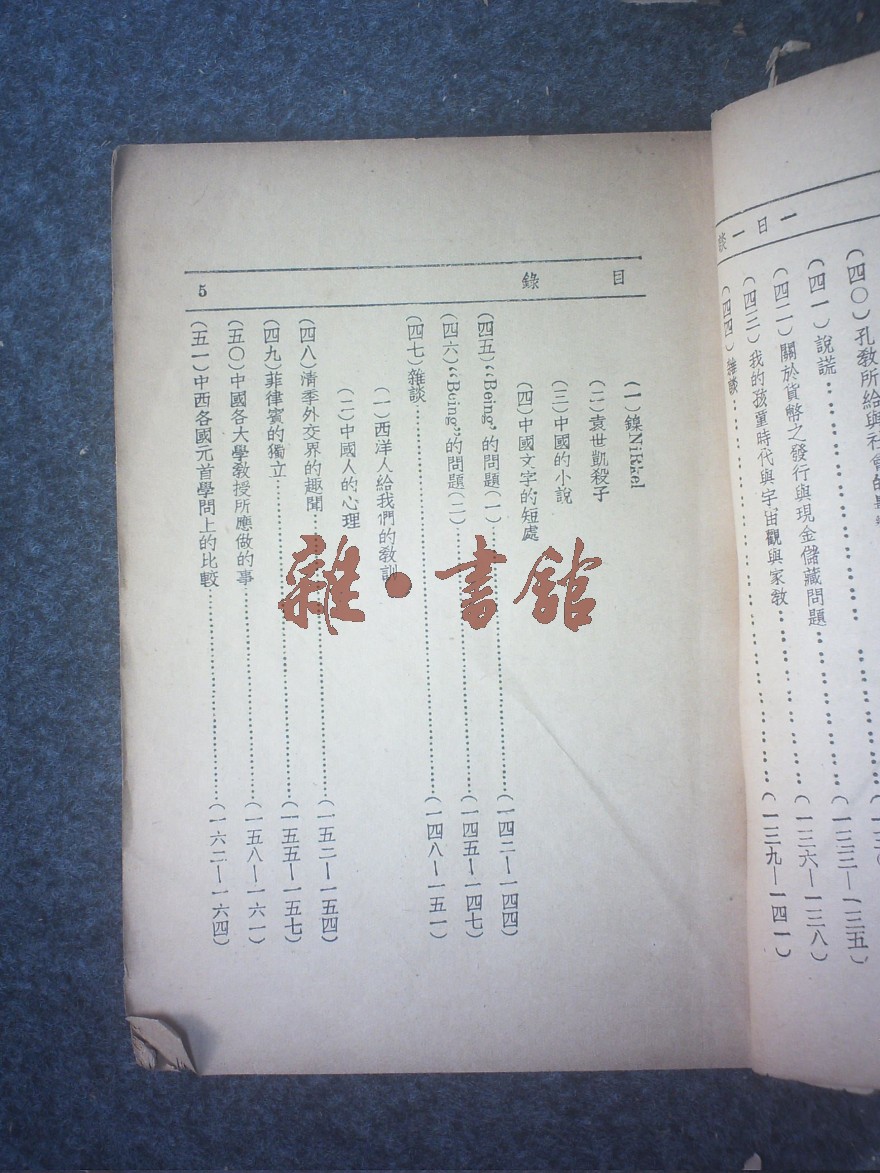 談一日一
(四〇)孔教所給與社會的
(四一)說謊……(一三三—一三五)
(四二)關於貨幣之發行與現金儲藏問題……(一三六—一三八)
(四三)我的孩童時代與宇宙觀與家教……(一三九—一四一)
(四四)雜談……
目錄 5
(一)鎳NiRkel
(二)袁世凱殺子
(三)中國的小說
(四)中國文字的短處
(四五)“Being”的問題(一)……(一四二—一四四)
(四六)“Being”的問題(二)……(一四五—一四七)
(四七)雜談……(一四八—一五一)
(一)西洋人給我們的教訓
(二)中國人的心理
(四八)清季外交界的趣聞……(一五二—一五四)
(四九)菲律賓的獨立……(一五五—一五七)
(五〇)中國各大學教授所應做的事……(一五八—一六一)
(五一)中西各國元首學問上的比較……(一六二—一六四)
雜·書館